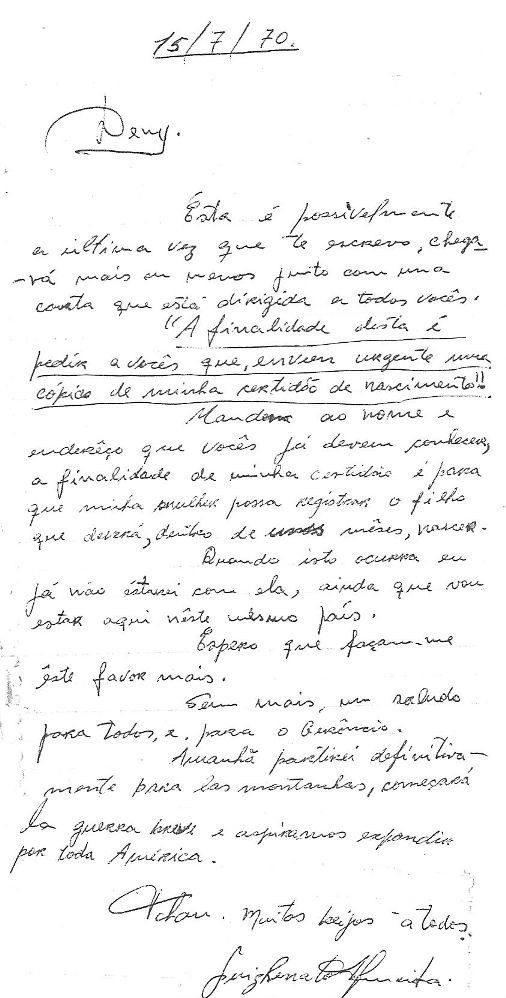 15/7/70.
Deny.
Ésta é possivelmente
a última vez que te escrevo, chega
-rá mais ou menos junto com uma
carta que está dirigida a todos vocês.
"A finalidade desta é
pedir a vocês que, enviem urgente uma
cópia de minha certidão de nascimento"!
Mandem ao nome e
enderêço que vocês já devem conhecer,
a finalidade de minha certidão é para
que minha mulher possa registrar o filho
que deverá, dentro de mêses, nascer.
Quando isto ocurra eu
já não éstarei com ela, ainda que vou
estar aqui nêste mesmo país.
Espero que façam-me
êste favor mais.
Sem mais, um saludo
para todos, e, para o Gerôncio.
Amanhã partirei definitiva-
mente para las montanhas, começará
la guerra e aspiramos expandir
por toda América.
Tchau. Muitos beijos a todos.
Luiz Renato Almeida.